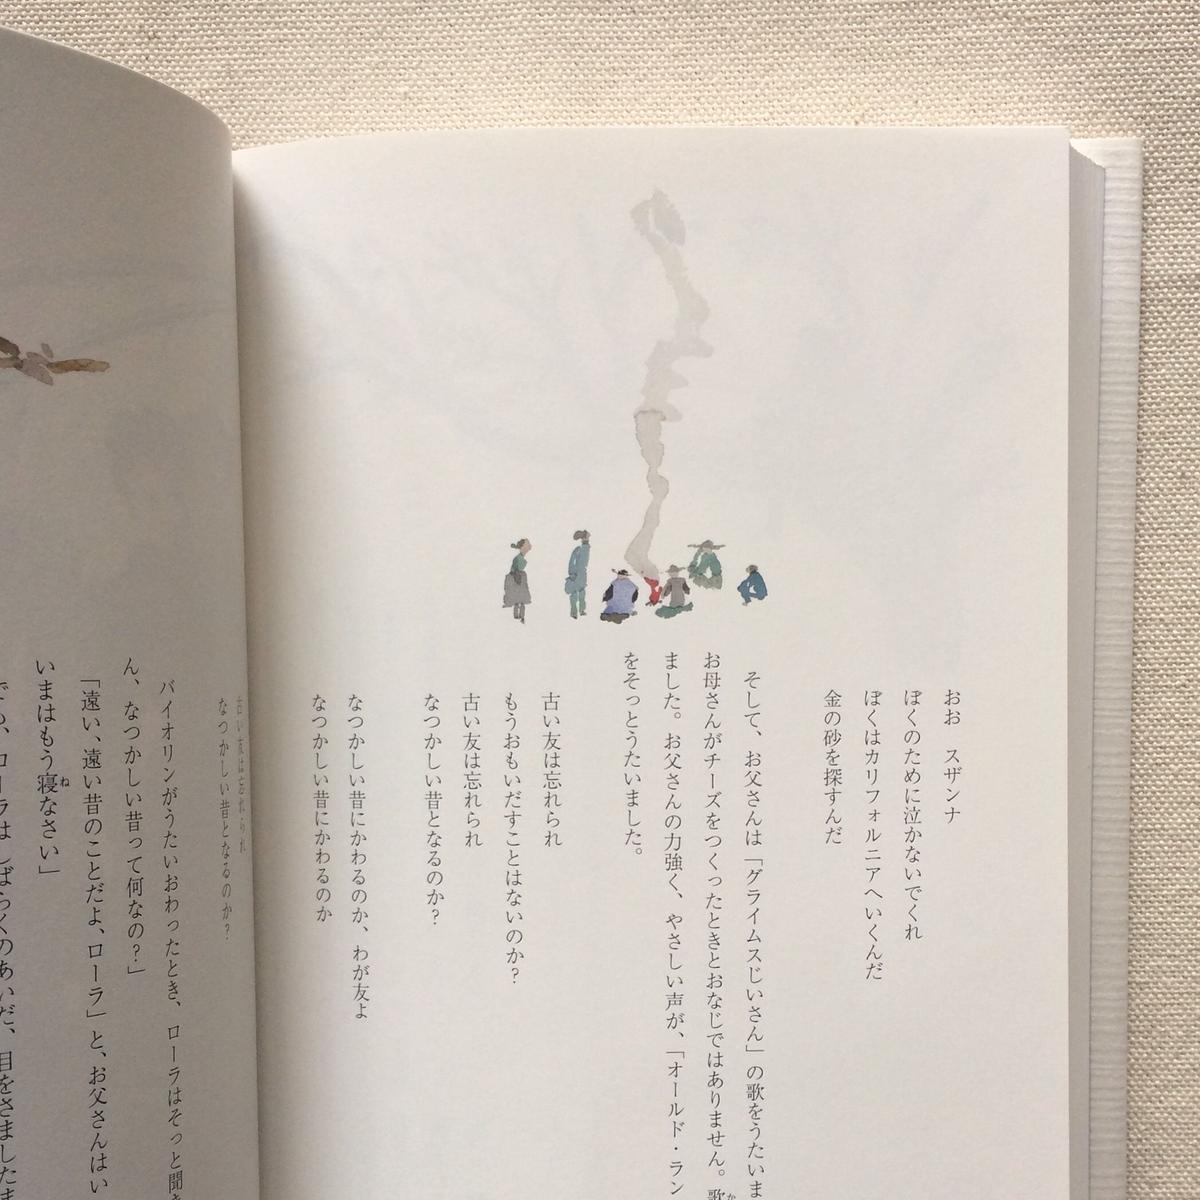 おお　スザンナ
ぼくのために泣かないでくれ
ぼくはカリフォルニアへいくんだ
金の砂を探すんだ
そして、お父さんは「グライムスじいさん」の歌をうたいま
お母さんがチーズをつくったときとおなじではありません。歌
ました。お父さんの力強く、やさしい声が、「オールド・ラン
をそっとうたいました。
古い友は忘れられ
もうおもいだすことはないのか？
古い友は忘れられ
なつかしい昔となるのか？
なつかしい昔にかわるのか、わが友よ
なつかしい昔にかわるのか
古い友は忘れられ
なつかしい昔となるのか？
バイオリンがうたいおわったとき、ローラはそっと聞き
ん、なつかしい昔って何なの？」
「遠い、遠い昔のことだよ、ローラ」と、お父さんはい
いまはもう寝なさい」
でも、ローラはしばらくのあいだ、目をさましたま